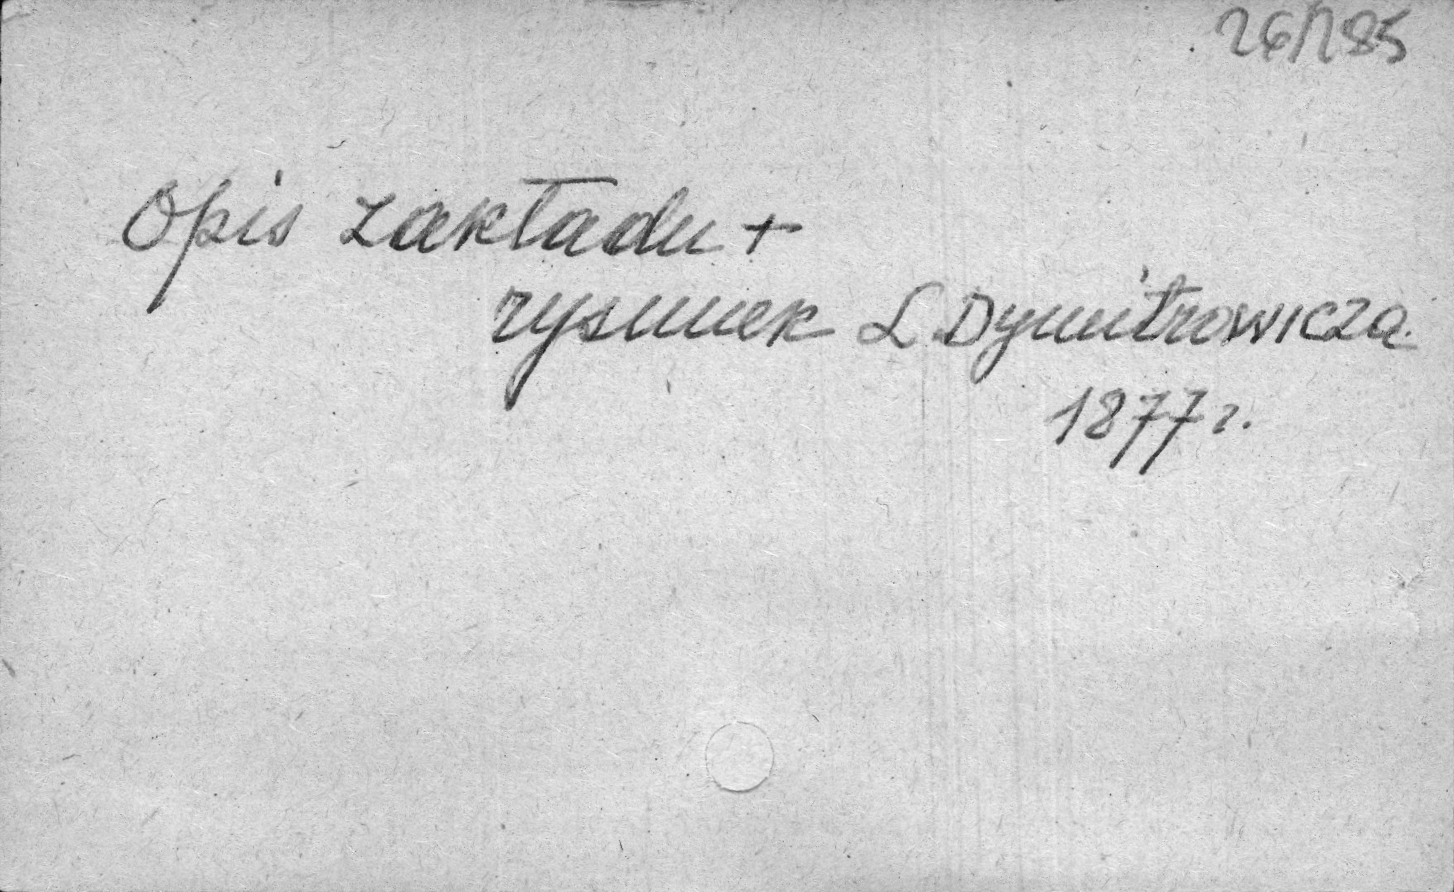 26/285
Opis zakładu +
rysunek L Dymitrowicza
1877 r.